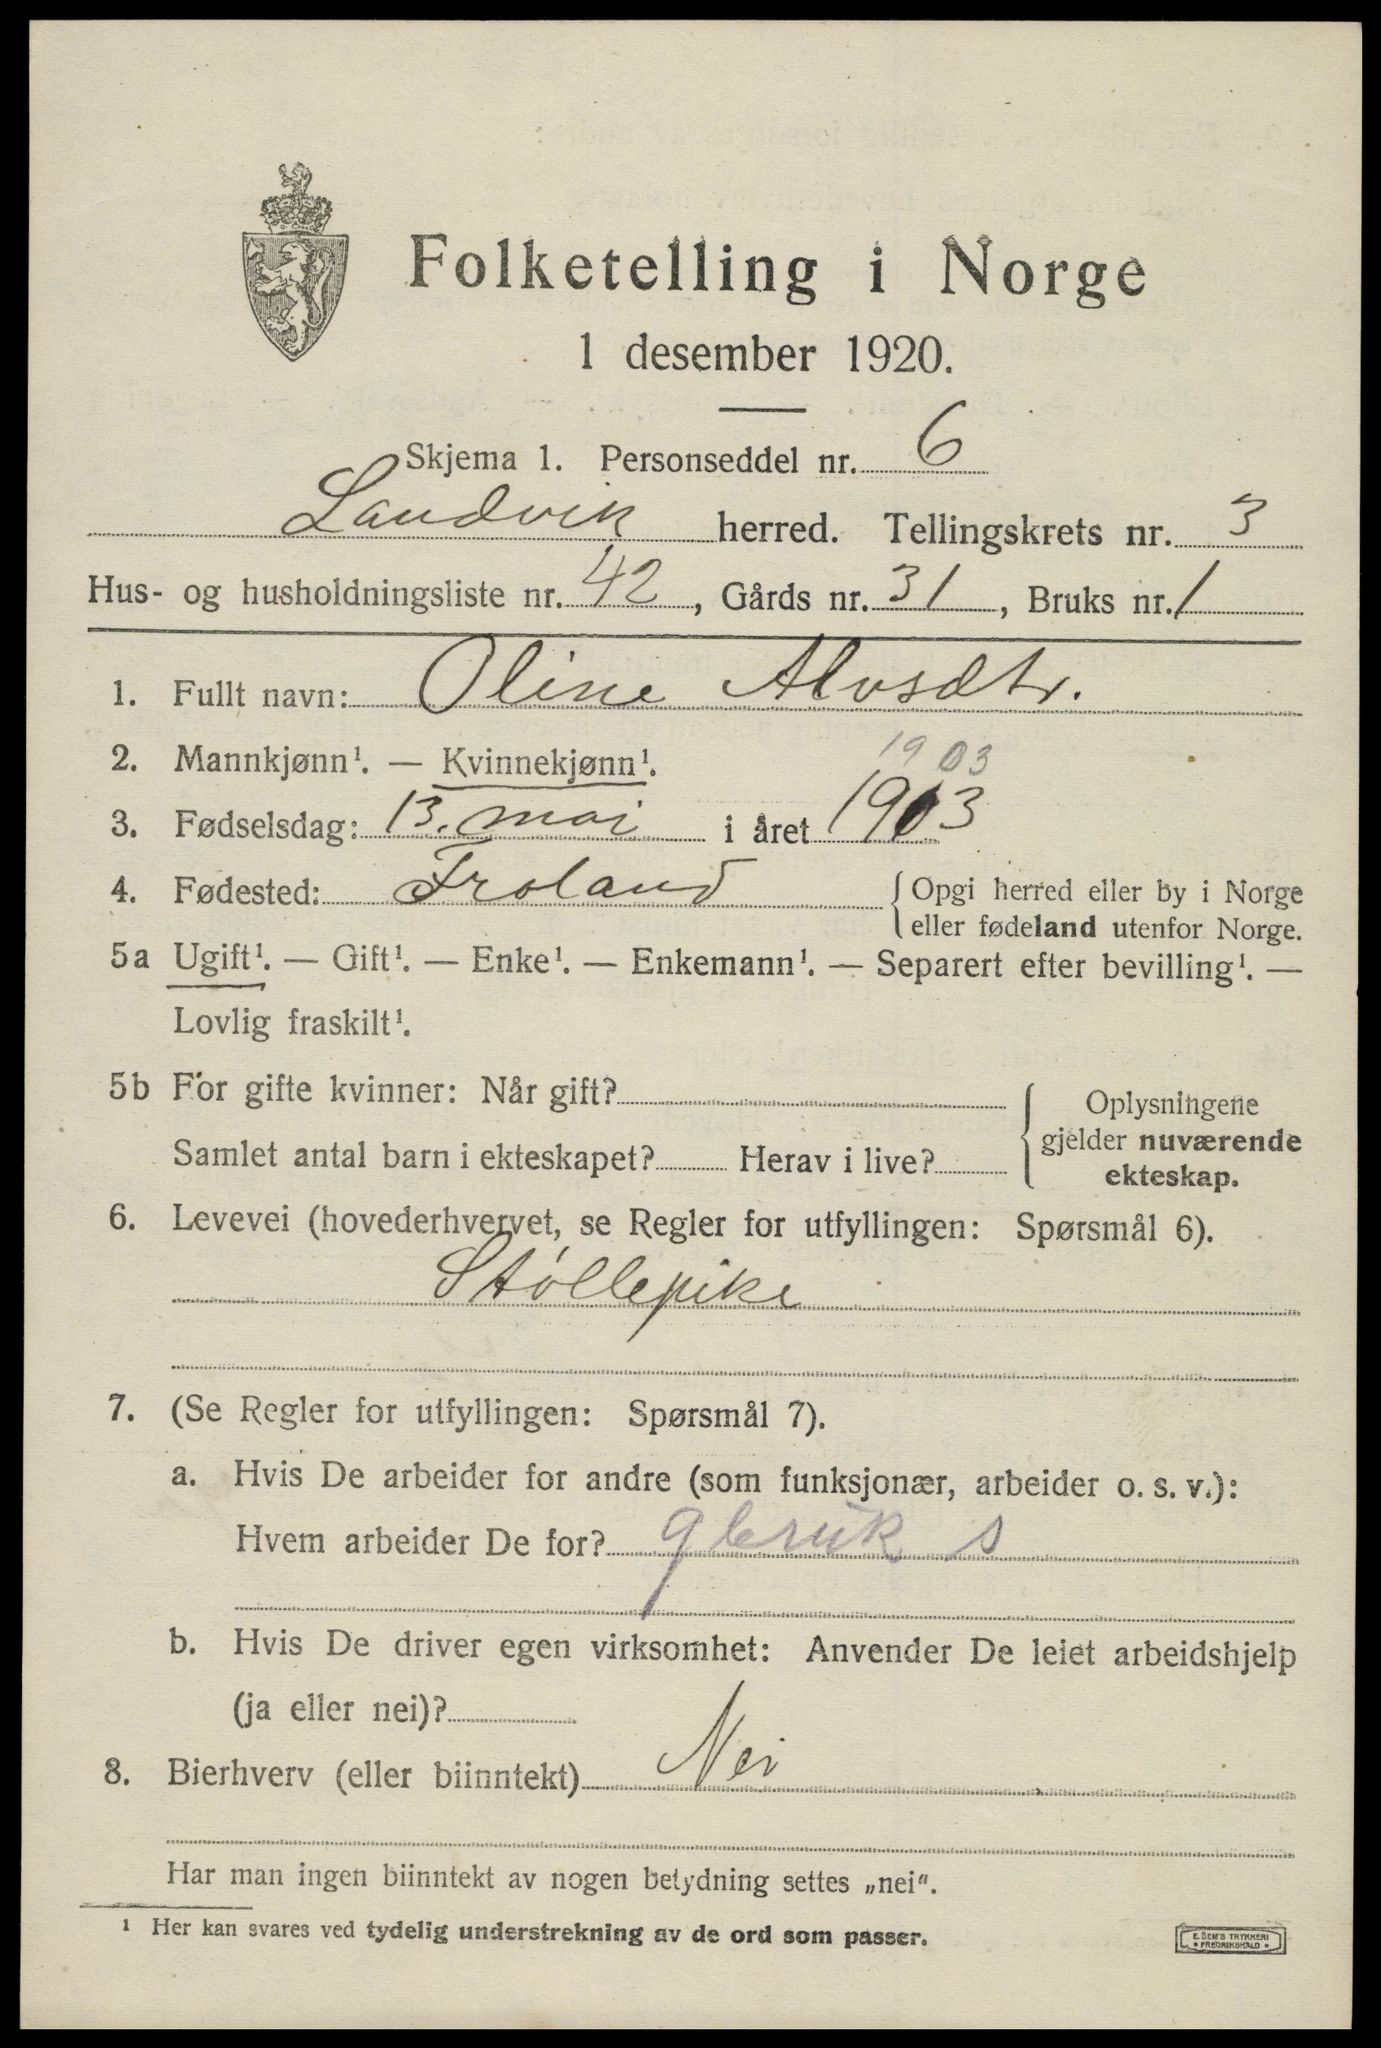 Folketelling i Norge
1 desember 1920.
Skjema 1. Personseddel nr. 6
Landvik herred. Tellingskrets nr. 3
Hus- og husholdningsliste nr. 42, Gårds nr. 31, Bruks nr. 1
1. Fullt navn: Oline Alvsdtr.
2. Mannkjønn¹. — Kvinnekjønn¹.
1903
3. Fødselsdag: 13. mai i året 1903
4. Fødested: Froland {Opgi herred eller by i Norge
eller fødeland utenfor Norge.
5a Ugift¹. — Gift¹. — Enke¹. — Enkemann¹. — Separert efter bevilling¹. —
Lovlig fraskilt¹.
5b For gifte kvinner: Når gift? Oplysningene
gjelder nuværende
Samlet antal barn i ekteskapet? Herav i live?
ekteskap.
6. Levevei (hovederhvervet, se Regler for utfyllingen: Spørsmål 6).
Støllepike
7. (Se Regler for utfyllingen: Spørsmål 7).
a. Hvis De arbeider for andre (som funksjonær, arbeider o. s. v.):
Hvem arbeider De for? gbruk s
b. Hvis De driver egen virksomhet: Anvender De leiet arbeidshjelp
(ja eller nei)?
8. Bierhverv (eller biinntekt) Nei
Har man ingen biinntekt av nogen betydning settes „nei".
¹ Her kan svares ved tydelig understrekning av de ord som passer.
E. SEM'S TRYKKERI
• FREDRIKSHALD •